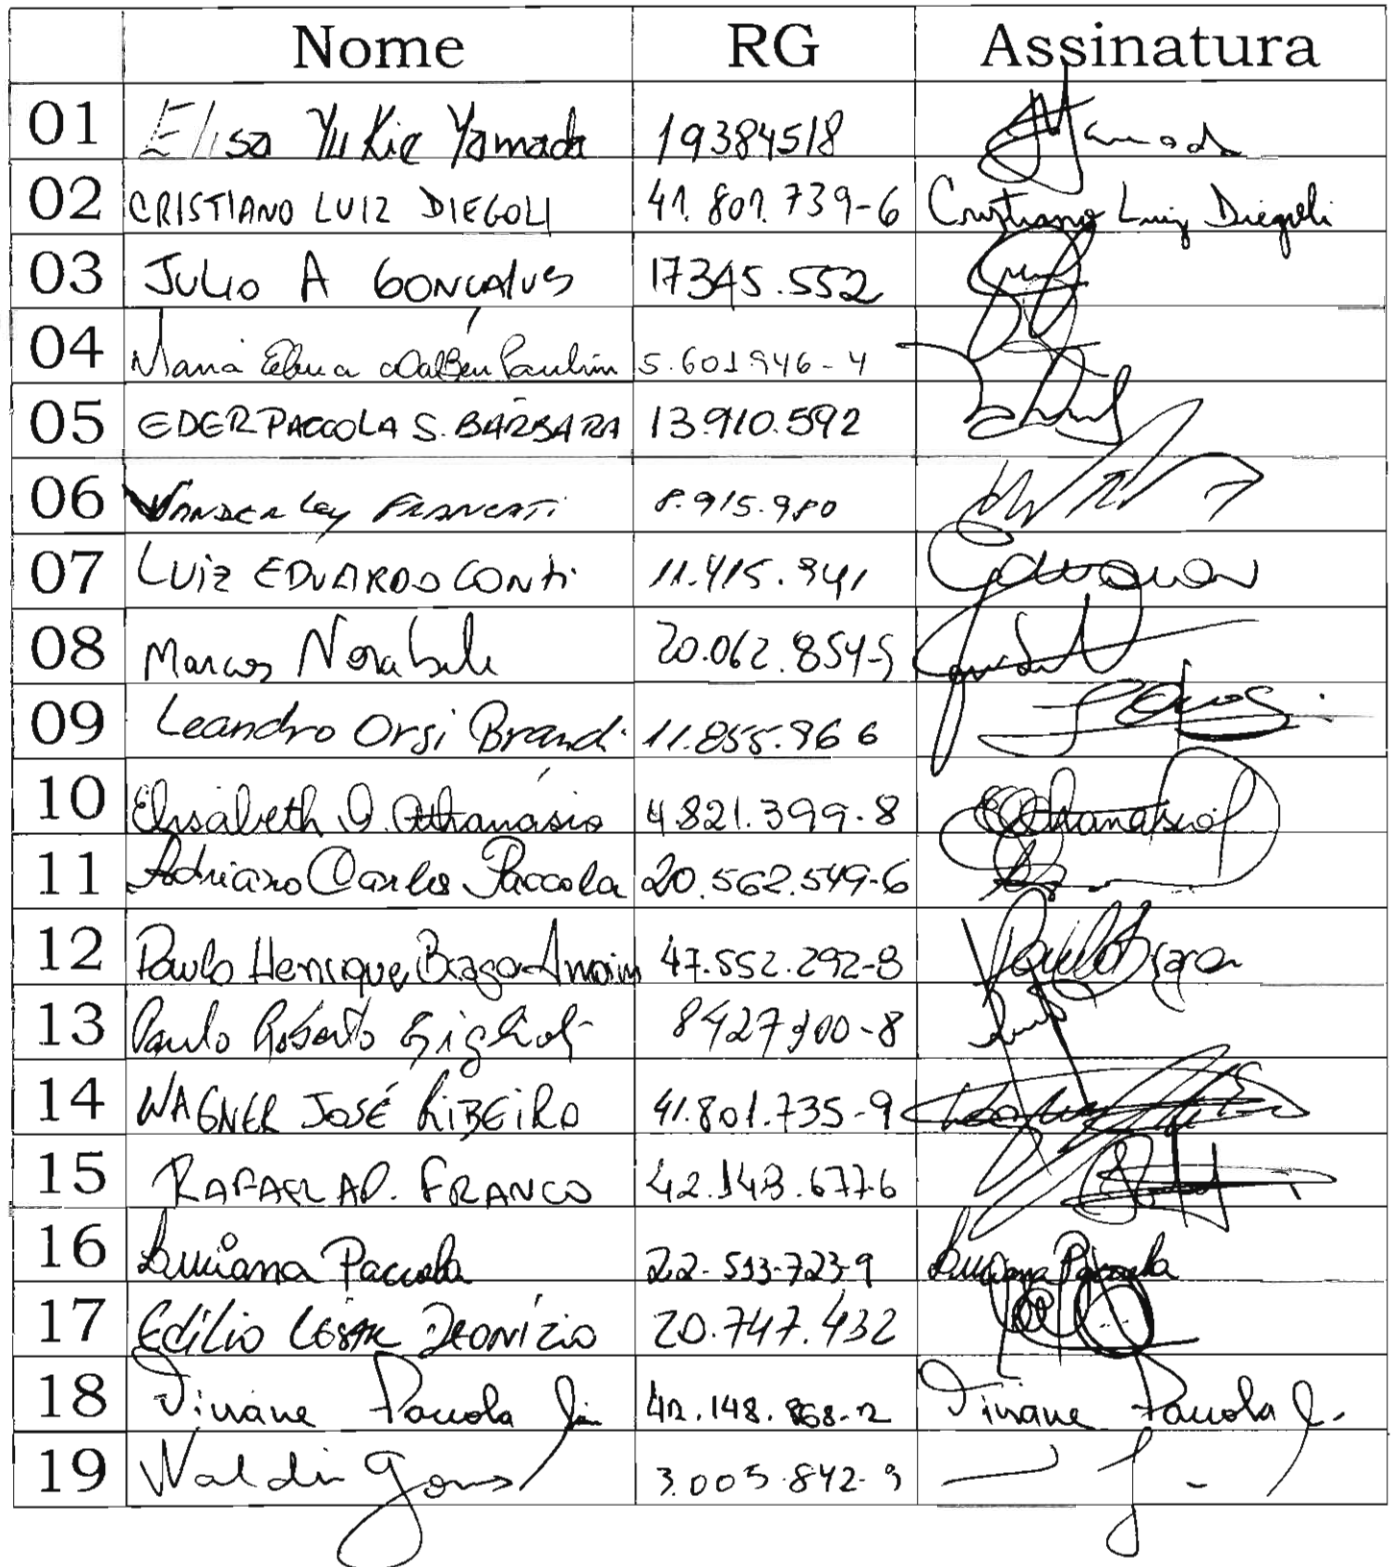 Nome RG Assinatura
01 Elisa Yukie Yamada 19384518
02 CRISTIANO LUIZ DIEGOLI 41.801.739-6 Cristiano Luiz Diegoli
03 JULIO A GONÇALVES 17345.552
04 Maria Dalben Paulin 5.601.946-4
05 EDER PACCOLA S. BÁRBARA 13.910.592
06 VANDERLEY FRANCATI 8.915.980
07 LUIZ EDUARDO CONTI 11.415.941
08 Marcos 20.062.854-5
09 Leandro Orsi Brandi 11.855.966
10 Elisabeth O. Athanásio 4.821.399-8 Athanasio
11 Adriano Carlos Paccola 20.562.549-6
12 Paulo Henrique Braga Amoim 47.552.292-8 Paulo Braga
13 Paulo Roberto Giglioti
14 WAGNER JOSÉ RIBEIRO 41.801.735-9
15 RAFAEL AP. FRANCO 42.143.677-6
16 Luciana Paccola 22-513-723-9 Luciana Paccola
17 Edílio César Deonízio 20.747.432
18 Viviane Paccola 42.148.868-2 Viviane Paccola
19 Waldir 3.005.842-9